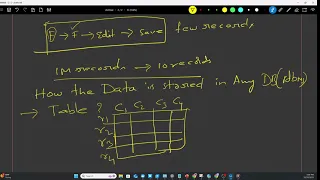 F → F → Edit → Save few records
1M records → 10 records
How the Data is stored in Any DB(Rdbms)
→ Table ? C1 C2 C3 C4
r1
r2
r3
r4